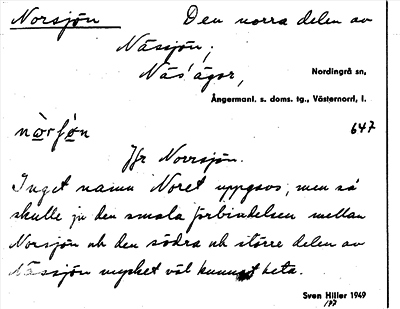 Norsjön Den norra delen av
Nässjön,
Näs' ägor, Nordingrå sn,
Ångermanl. s. doms. tg., Västernorrl. l.
647
Jfr Norrsjön.
Inget namn Noret uppgavs, men så
skulle ju den smala förbindelsen mellan
Norsjön och den södra och större delen av
Nässjön mycket väl kunnat heta.
Sven Hiller 1949